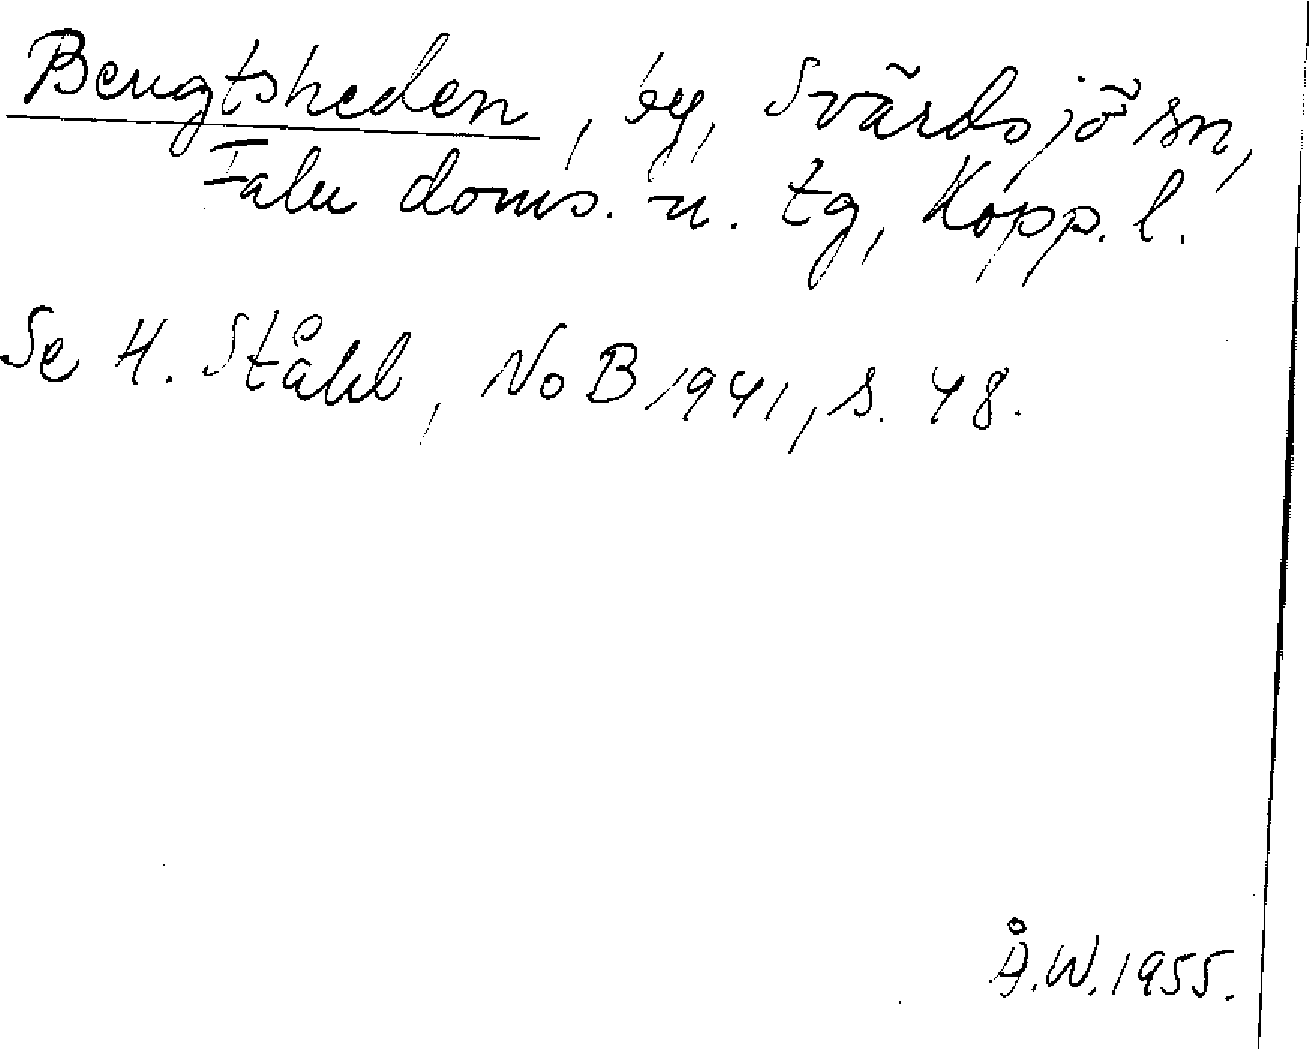 Bengtsheden, by, Svärdsjö sn,
Falu doms. n. tg, Kopp. l.
Se H. Ståhl, NoB 1941, s. 48.
Å.W. 1955.